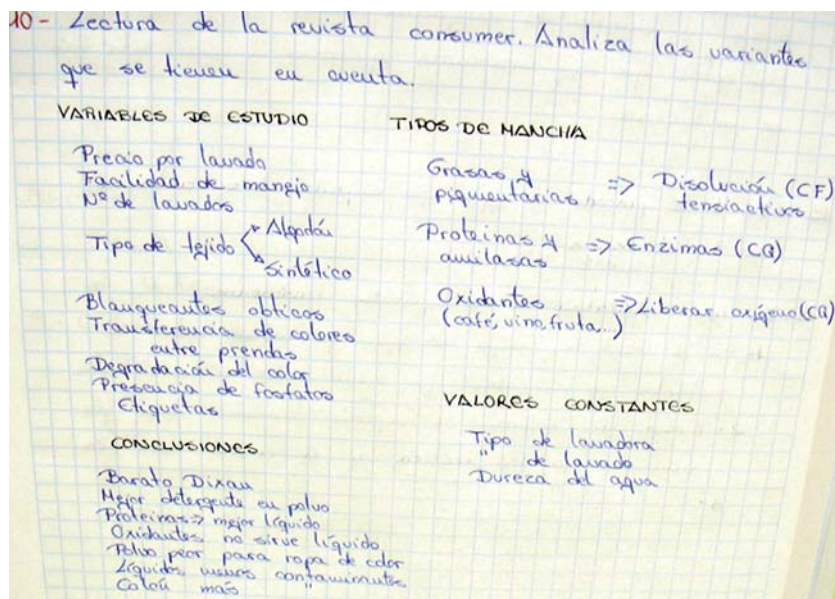 10- Lectura de la revista consumer. Analiza las variantes
que se tienen en cuenta.
VARIABLES DE ESTUDIO
Precio por lavado
Facilidad de manejo
Nº de lavados
Tipo de tejido
Algodón
Sintético
Blanqueantes obticos
Transferencia de colores
entre prendas
Degradación del color
Presencia de fosfatos
Etiquetas
CONCLUSIONES
Barato Dixan
Mejor detergente en polvo
Proteinas => mejor líquido
Oxidantes no sirve líquido
Polvo peor para ropa de color
Líquidos menos contaminantes
Colón más "
TIPOS DE MANCHA
Grasas y
pigmentarias => Disolución (CF)
tensiactivos
Proteinas y
amilasas => Enzimas (CQ)
Oxidantes => Liberar oxígeno (CQ)
(café, vino, fruta...)
VALORES CONSTANTES
Tipo de lavadora
" de lavado
Dureza del agua